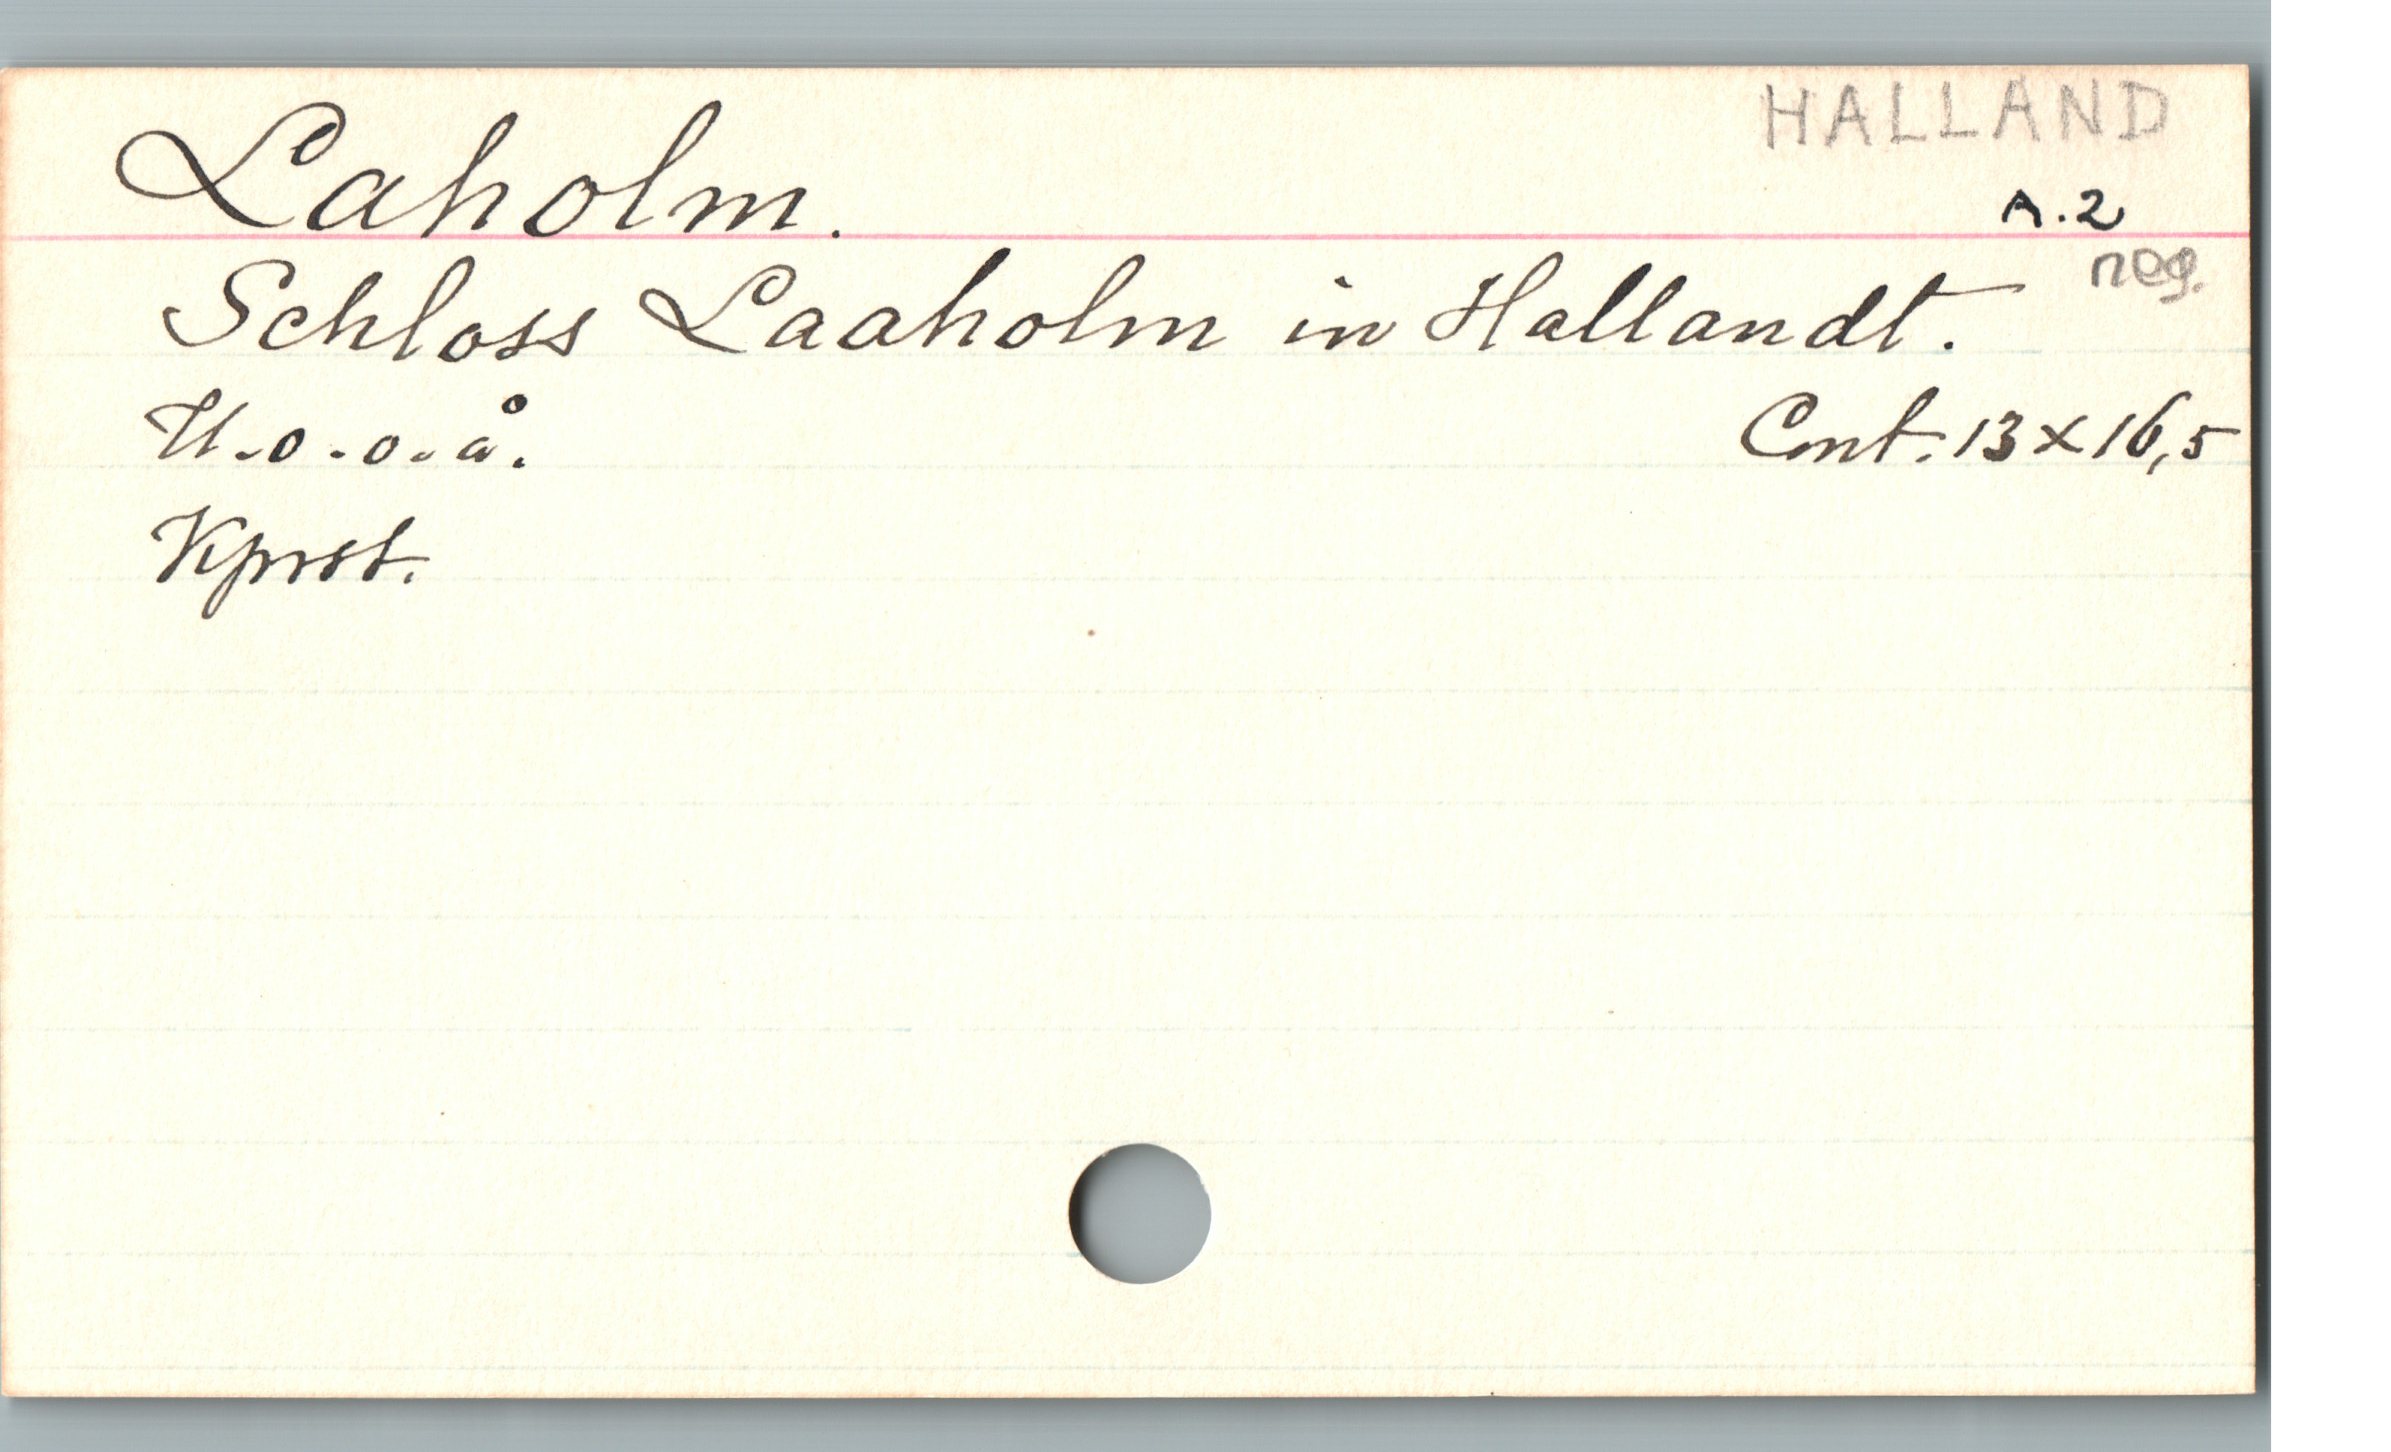 HALLAND
Laholm.
A.2
neg.
Schloss Laaholm in Hallandt.
U.o.o.å. Cont. 13 x 16,5
Kprst.